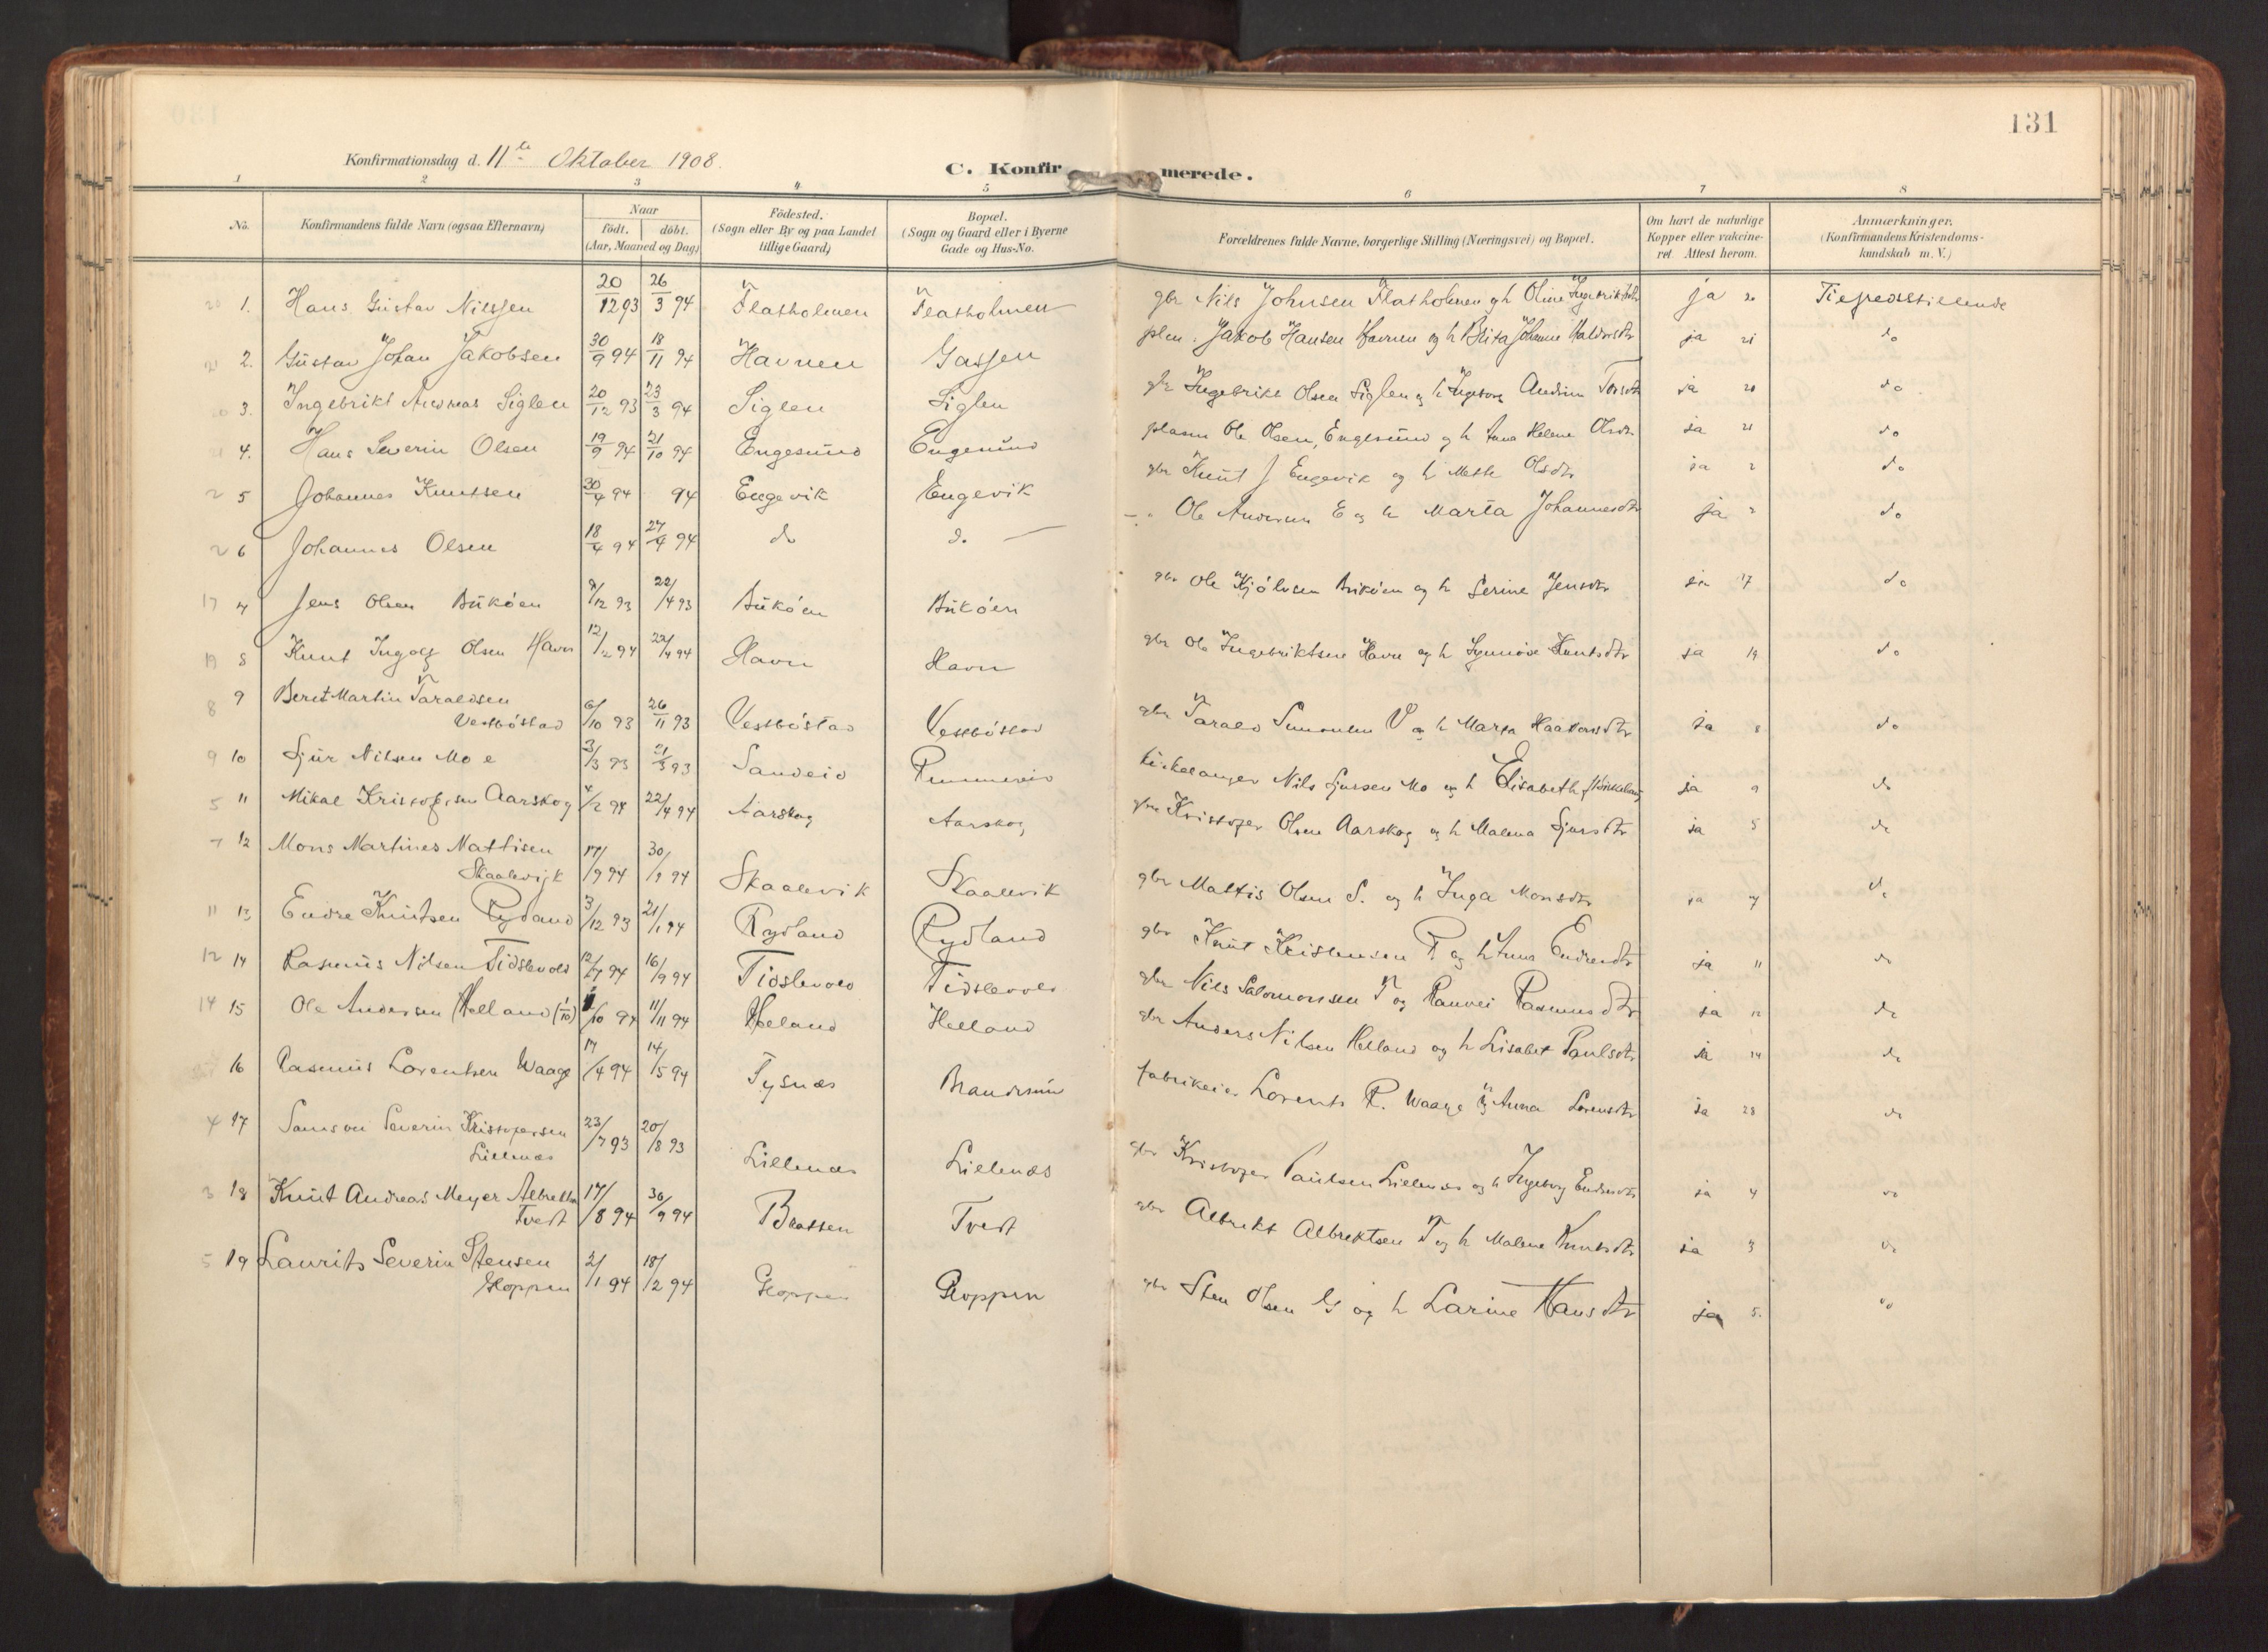 131
Konfirmationsdag d. 11te Oktober 1908.
C. Konfirmerede.
1 2 3 4 5 6 7 8
No. Konfirmandens fulde Navn (ogsaa Efternavn) Naar født. døbt. (Aar, Maaned og Dag) Födested. (Sogn eller By og paa Landet tillige Gaard) Bopæl. (Sogn og Gaard eller i Byerne Gade og Hus-No. Forældrenes fulde Navne, borgerlige Stilling (Næringsvei) og Bopæl. Om havt de naturlige Kopper eller vakcineret. Attest herom. Anmærkninger. (Konfirmandens Kristendomskundskab m. V.)
20 1. Hans Gustav Nilssen 20/12 93 26/3 94 Flatholmen Flatholmen gbr Nils Johnsen Flatholmen og h Oline Ingebriktsdtr ja 20 Tilfredsstillende
21 2. Gustav Johan Jakobsen 30/9 94 18/11 94 Havnen Gassen plm. Jakob Hansen Havnen og h Brita Johanne Haldorsdtr ja 21 do
20 3. Ingebrikt Andreas Siglen 20/12 93 23/3 94 Siglen Siglen gbr Ingebrikt Olsen Siglen og h Ingeborg Andrina Torsdtr ja 20 do
21 4. Hans Severin Olsen 19/9 94 21/10 94 Engesund Engesund plasm Ole Olsen, Engesund og h Anna Helene Olsdtr ja 21 do
2 5 Johannes Knutsen 30/4 94 94 Engevik Engevik gbr Knut J Engevik og h Mette Olsdtr ja 2 do
2 6 Johannes Olsen 18/4 94 27/4 94 do do — - " Ole Andersen E og h Marta Johannesdtr ja 2 do
17 7 Jens Olsen Bukøen 9/12 93 22/4 93 Bukøen Bukøen gbr Ole Kjølvsen Bukøen og h Serine Jensdtr ja 17 do
19 8 Knut Ingolf Olsen Havn 12/12 94 22/4 94 Havn Havn gbr Ole Ingebriktsen Havn og h Synnøve Knutsdtr ja 19 do
8 9 Berent Martin Taraldsen
Vestbøstad 6/10 93 26/11 93 Vestbøstad Vestbøstad gbr Tarald Simonsen V og h Marta Haakonsdtr ja 8 do
9 10 Sjur Nilsen Moe 3/3 93 21/3 93 Sandeid Rummereid kirkesanger Nils Sjursen Mo og h Elisabeth ja 9 do
5 11 Mikal Kristofersen Aarskog 4/2 94 22/4 94 Aarskog Aarskog gbr Kristofer Olsen Aarskog og h Malena Sjursdtr ja 5 do
7 12 Mons Martines Mattisen
Skaalevik 17/9 94 30/9 94 Skaalevik Skaalevik gbr Mattis Olsen S. og h Inga Monsdtr ja 7 do
11 13 Endre Knutsen Rydland 3/12 93 21/1 94 Rydland Rydland gbr Knut Kristensen R og h Anna Endresdtr ja 11 do
12 14 Rasmus Nilsen Tidslevold 12/7 94 16/9 94 Tidslevold Tidslevold gbr Nils Salomonsen T og Ranvei Rasmusdtr ja 12 do
14 15 Ole Andersen Helland (1/10) 1/10 94 11/11 94 Helland Helland gbr Anders Nilsen Helland og h Lisabet Paulsdtr ja 14 do
16 Rasmus Lorentsen Waage 17/4 94 14/5 94 Tysnes Brandesund fabrikeier Lorents R. Waage og Anna Lorensdtr ja 28 do
4 17 Samson Severin Kristofersen
Lillenæs 23/7 93 20/8 93 Lillenæs Lillenæs gbr Kristofer Paulsen Lillenæs og h Ingeborg Endresdtr ja 4 do
3 18 Knut Andreas Meyer Albrektsen
Tveit 17/8 94 30/9 94 Bratten Tveit gbr Albrekt Albrektsen T og h Malene Knutsdtr ja 3 do
5 19 Laurits Severin Stensen
Gloppen 2/1 94 18/2 94 Gloppen Gloppen gbr Sten Olsen G og h Larine Hansdtr ja 5. do